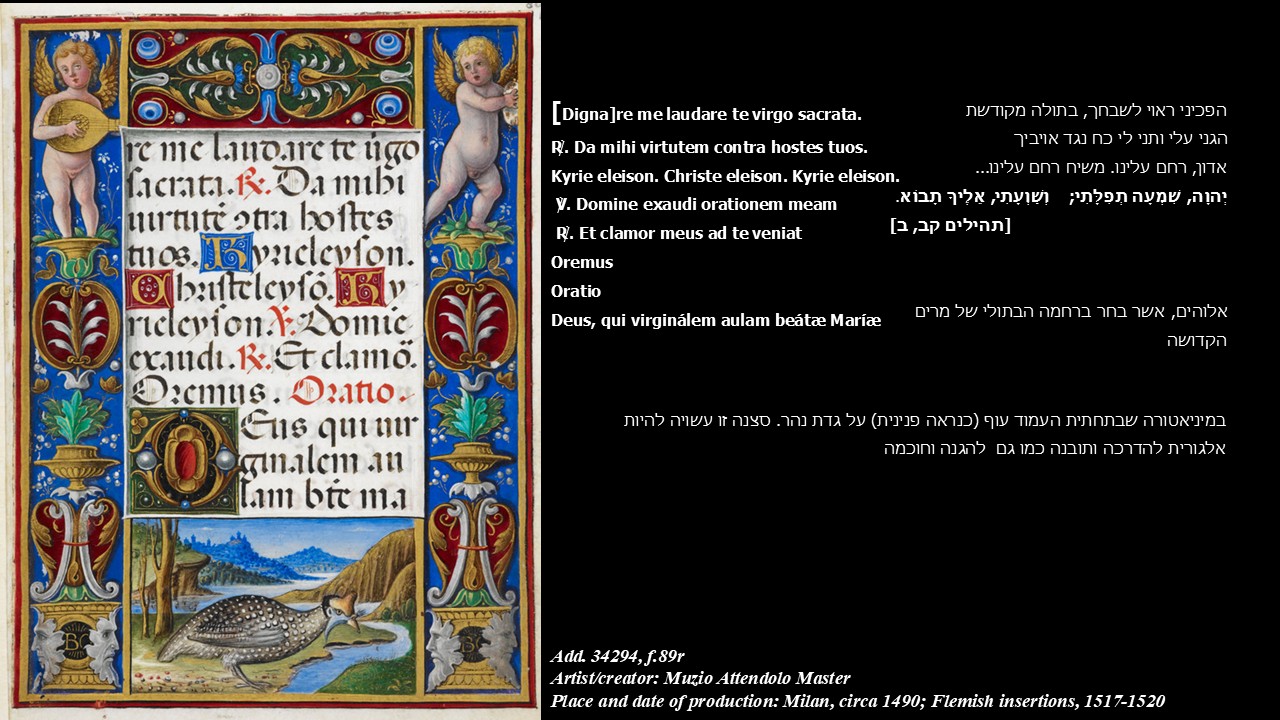 re me laudare te v̄go
sacrata. ℟. Da mihi
uirtutē ↄtra hostes
tuos. Kyrieleyson.
Christeleysō. Ky
rieleyson. ℣. Domīe
exaudi. ℟. Et clamoꝛ̄.
Oremus. Oratio.
Deus qui uir
ginalem au
lam btē ma
BC
[Digna]re me laudare te virgo sacrata.
℟. Da mihi virtutem contra hostes tuos.
Kyrie eleison. Christe eleison. Kyrie eleison.
℣. Domine exaudi orationem meam
℟. Et clamor meus ad te veniat
Oremus
Oratio
Deus, qui virginálem aulam beátæ Maríæ
הפכיני ראוי לשבחך, בתולה מקודשת
הגני עלי ותני לי כח נגד אויביך
אדון, רחם עלינו. משיח רחם עלינו...
יְהוָה, שִׁמְעָה תְפִלָּתִי; וְשַׁוְעָתִי, אֵלֶיךָ תָבוֹא.
[תהילים קב, ב]
אלוהים, אשר בחר ברחמה הבתולי של מרים
הקדושה
במיניאטורה שבתחתית העמוד עוף (כנראה פנינית) על גדת נהר. סצנה זו עשויה להיות
אלגורית להדרכה ותובנה כמו גם להגנה וחוכמה
Add. 34294, f.89r
Artist/creator: Muzio Attendolo Master
Place and date of production: Milan, circa 1490; Flemish insertions, 1517-1520